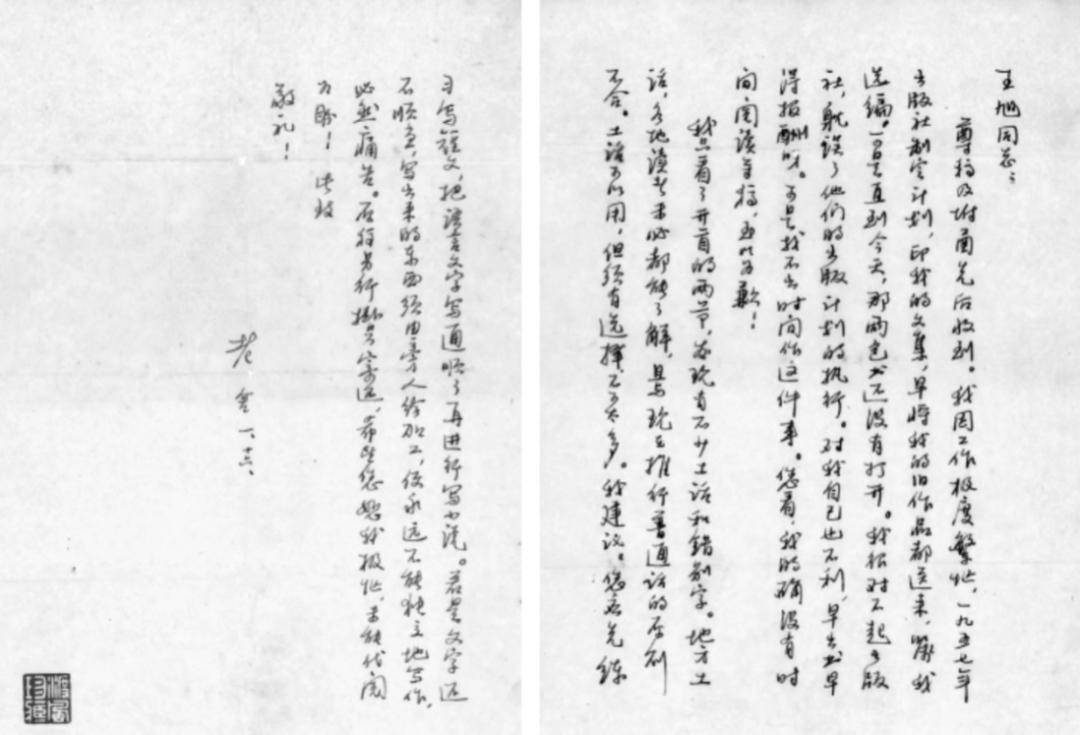 王旭同志：
尊稿及附函先后收到。我因工作极度繁忙，一九五七年
出版社制定计划，印我的文集，早将我的旧作品都送来，嘱我
选编。可是直到今天，那两包书还没有打开。我很对不起出版
社，耽误了他们的出版计划的执行。对我自己也不利，早出书早
得报酬呀。可是找不出时间作这件事。您看，我的确没有时
间阅读尊稿，至以为歉！
我只看了开首的两节，发现有不少土话和错别字。地方土
话，各地读者未必都能了解，与现在推行普通话的原则
不合。土话可以用，但须有选择，不要多。我建议：您应先练
习写短文，把语言文字写通顺了再进行写小说。若是文字还
不顺当，写出来的东西须由旁人给加工，便永远不能独立地写作，
必然痛苦。原稿另行挂号寄还，希望您恕我极忙，未能代阅
为盼！此致
敬礼！
老舍 一、十六、